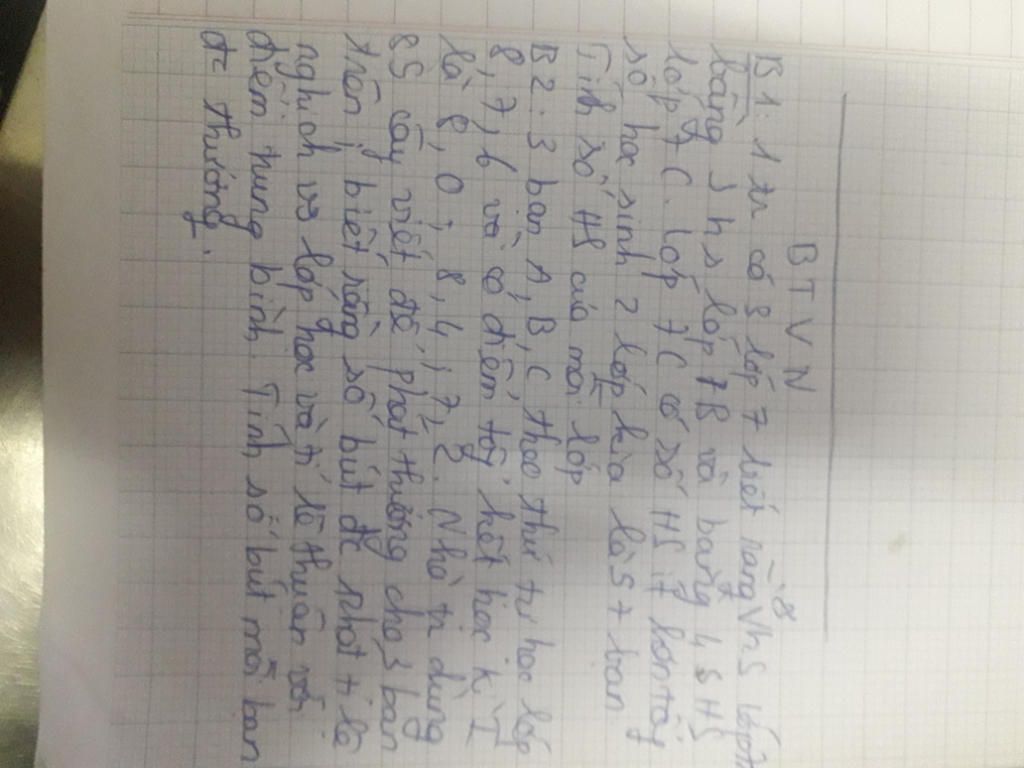 BTVN
B1: 1 tr có 3 lớp 7 biết rằng hs lớp 7
bằng 3 hs lớp 7B và bằng 4,5 HS
lớp 7C. lớp 7C có số HS ít hơn tổng
số học sinh 2 lớp kia là 57 bạn
Tính số HS của mỗi lớp
B2: 3 bạn A, B, C theo thứ tự học lớp
8, 7, 6 và có điểm tổng kết học kì I
là 8,0; 8,4; 7,2. Nhà tr dùng
85 cây viết để phát thưởng cho 3 bạn
trên, biết rằng số bút đc phát tỉ lệ
nghịch vs lớp học và tỉ lệ thuận với
điểm trung bình. Tính số bút mỗi bạn
đc thưởng.